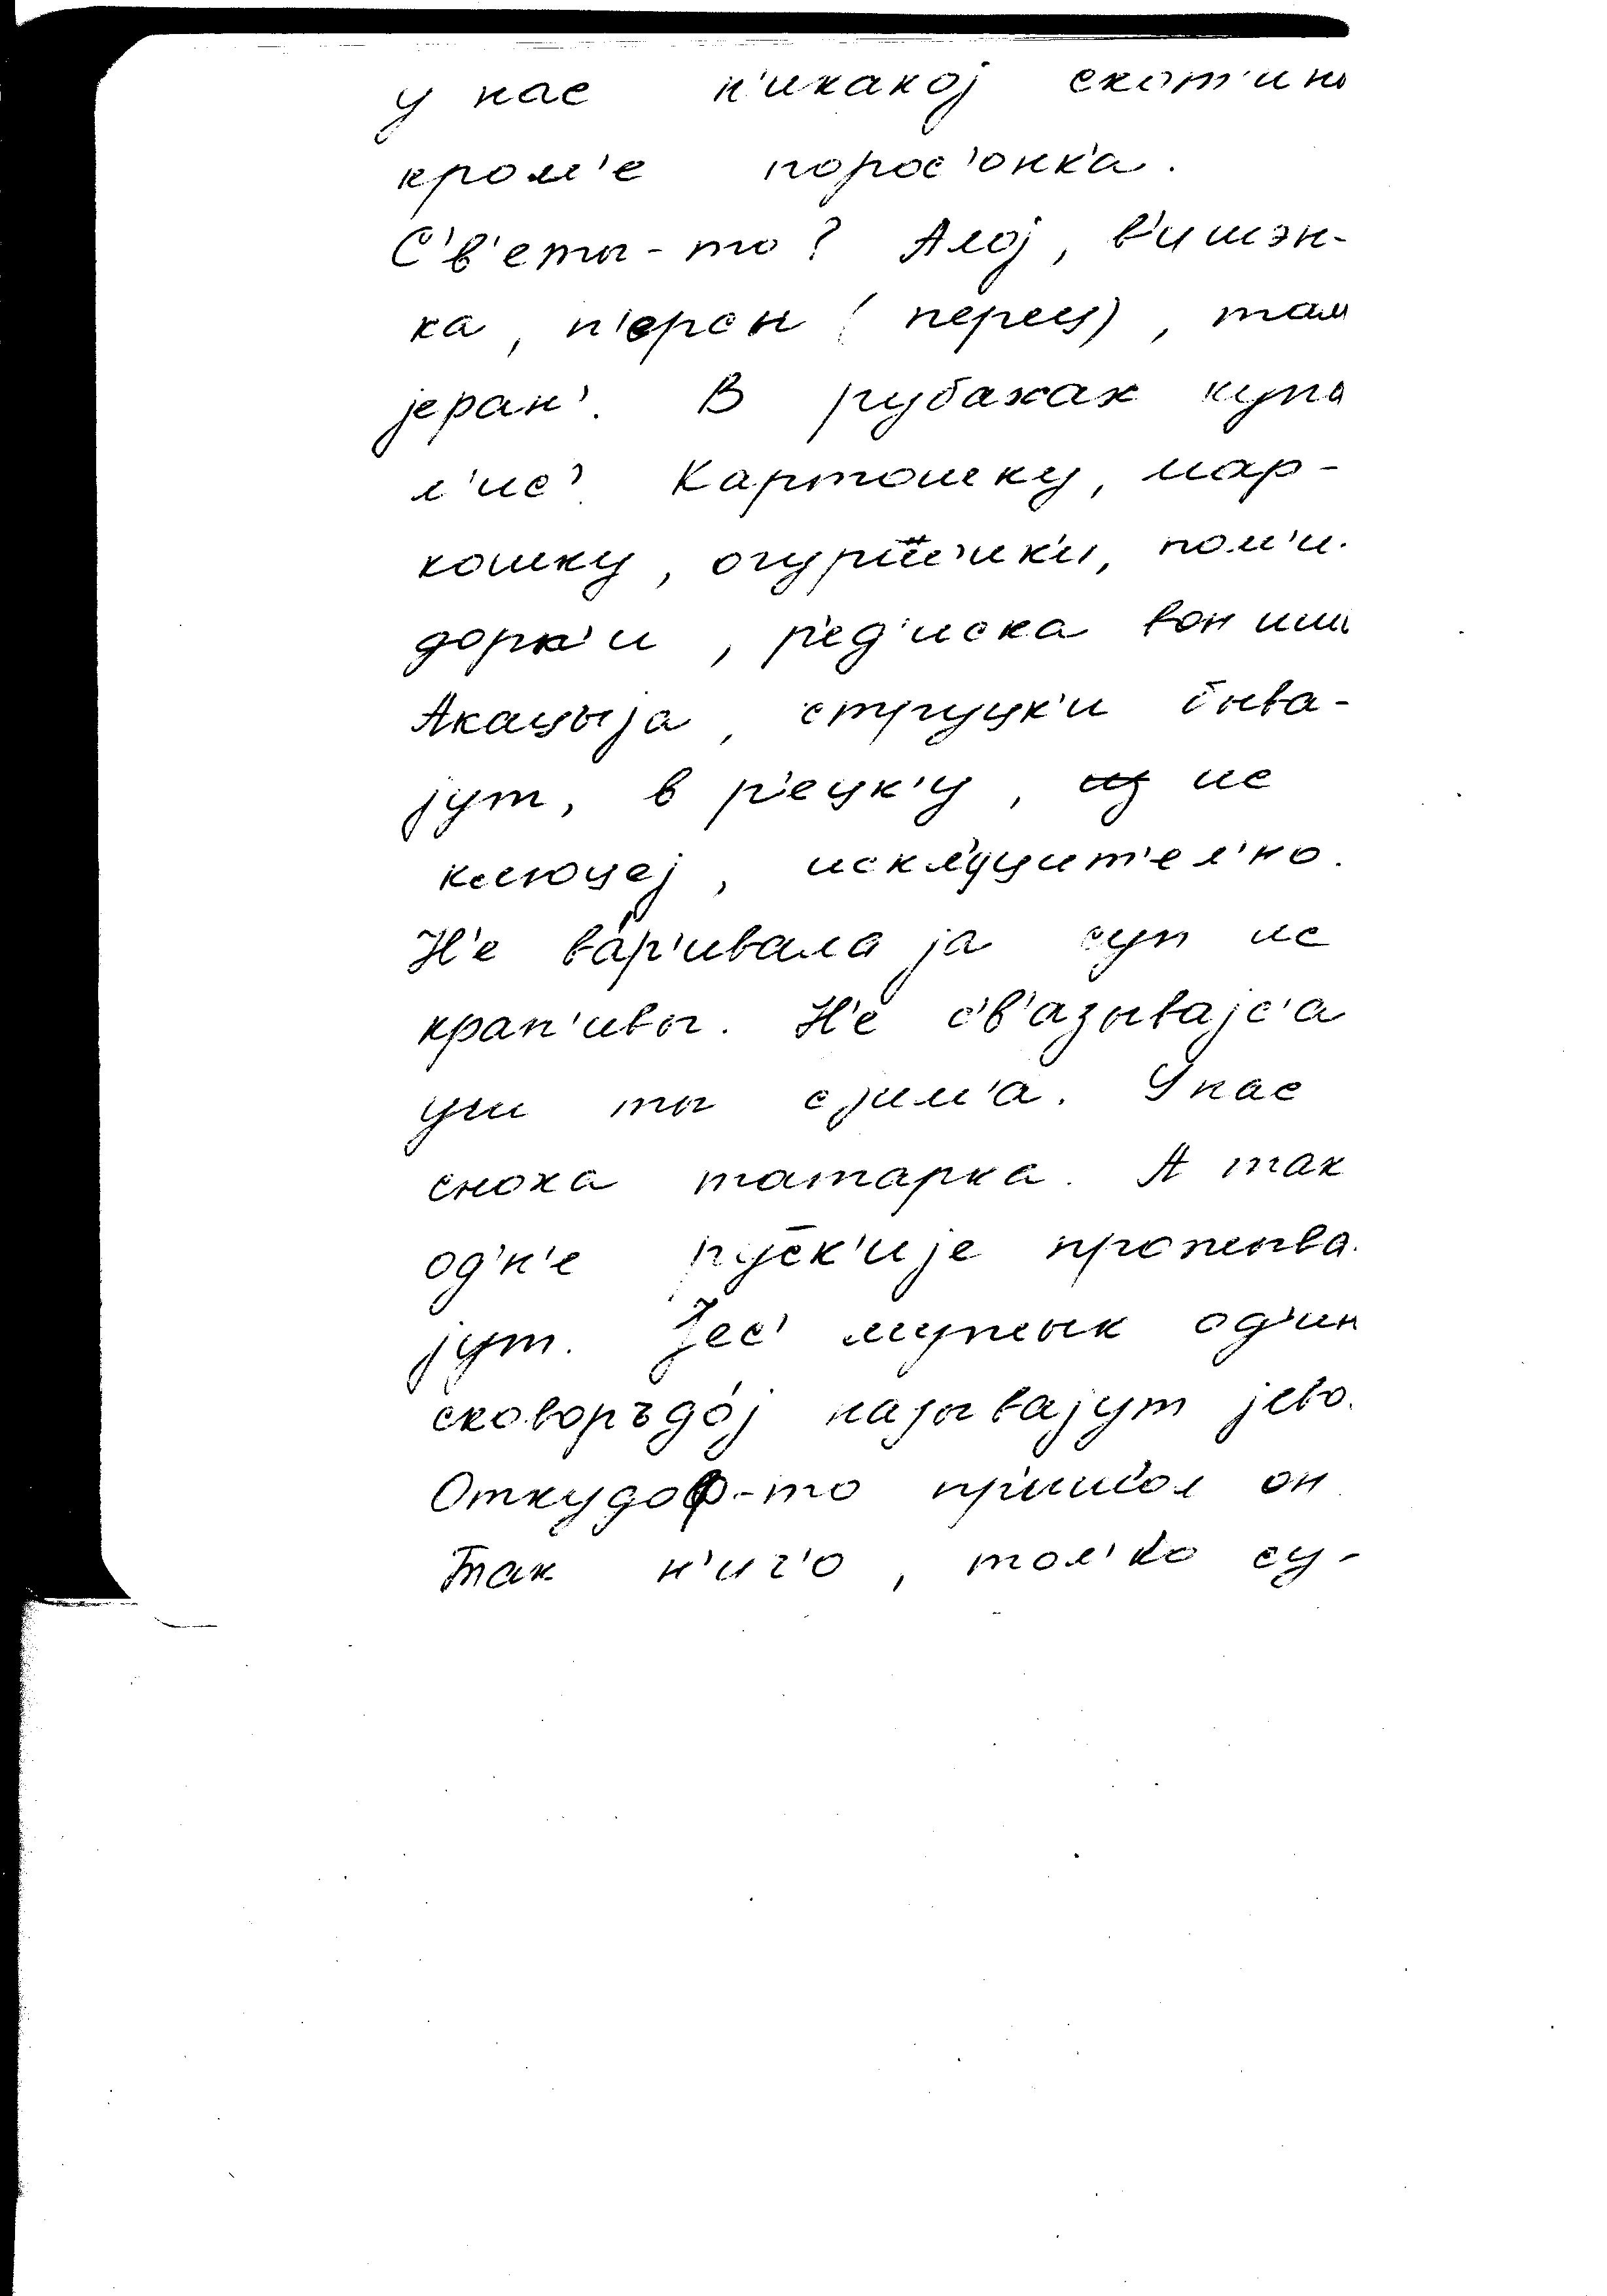 у нас н'икакој скот'ины
кром'е порос'онк'а.
С'в'еты-то? Алој, в'ишэн-
ка, п'ерсн (перец), там
јеран'. В рубахах купа
л'ис'. Картошку, мар-
кошку, огурш̅'ик'и, пом'и-
дорк'и, р'ед'иска вон
Акацыја, струцк'и быва-
јут, в р'ецк'у, ис
кл'юцеј, искл'уцит'ел'но.
Н'е вар'ивала ја суп ис
крап'ивы. Н'е с'в'азывајс'а
уш ты с јим'а. У нас
сноха татарка. А так
од'н'е рус̅к'ије прожыва-
јут. Јес' мужык од'ин
сковоръдо́ј называјут јево.
Откудов-то пр'ишол он
Так н'иг'о, тол'ко су-